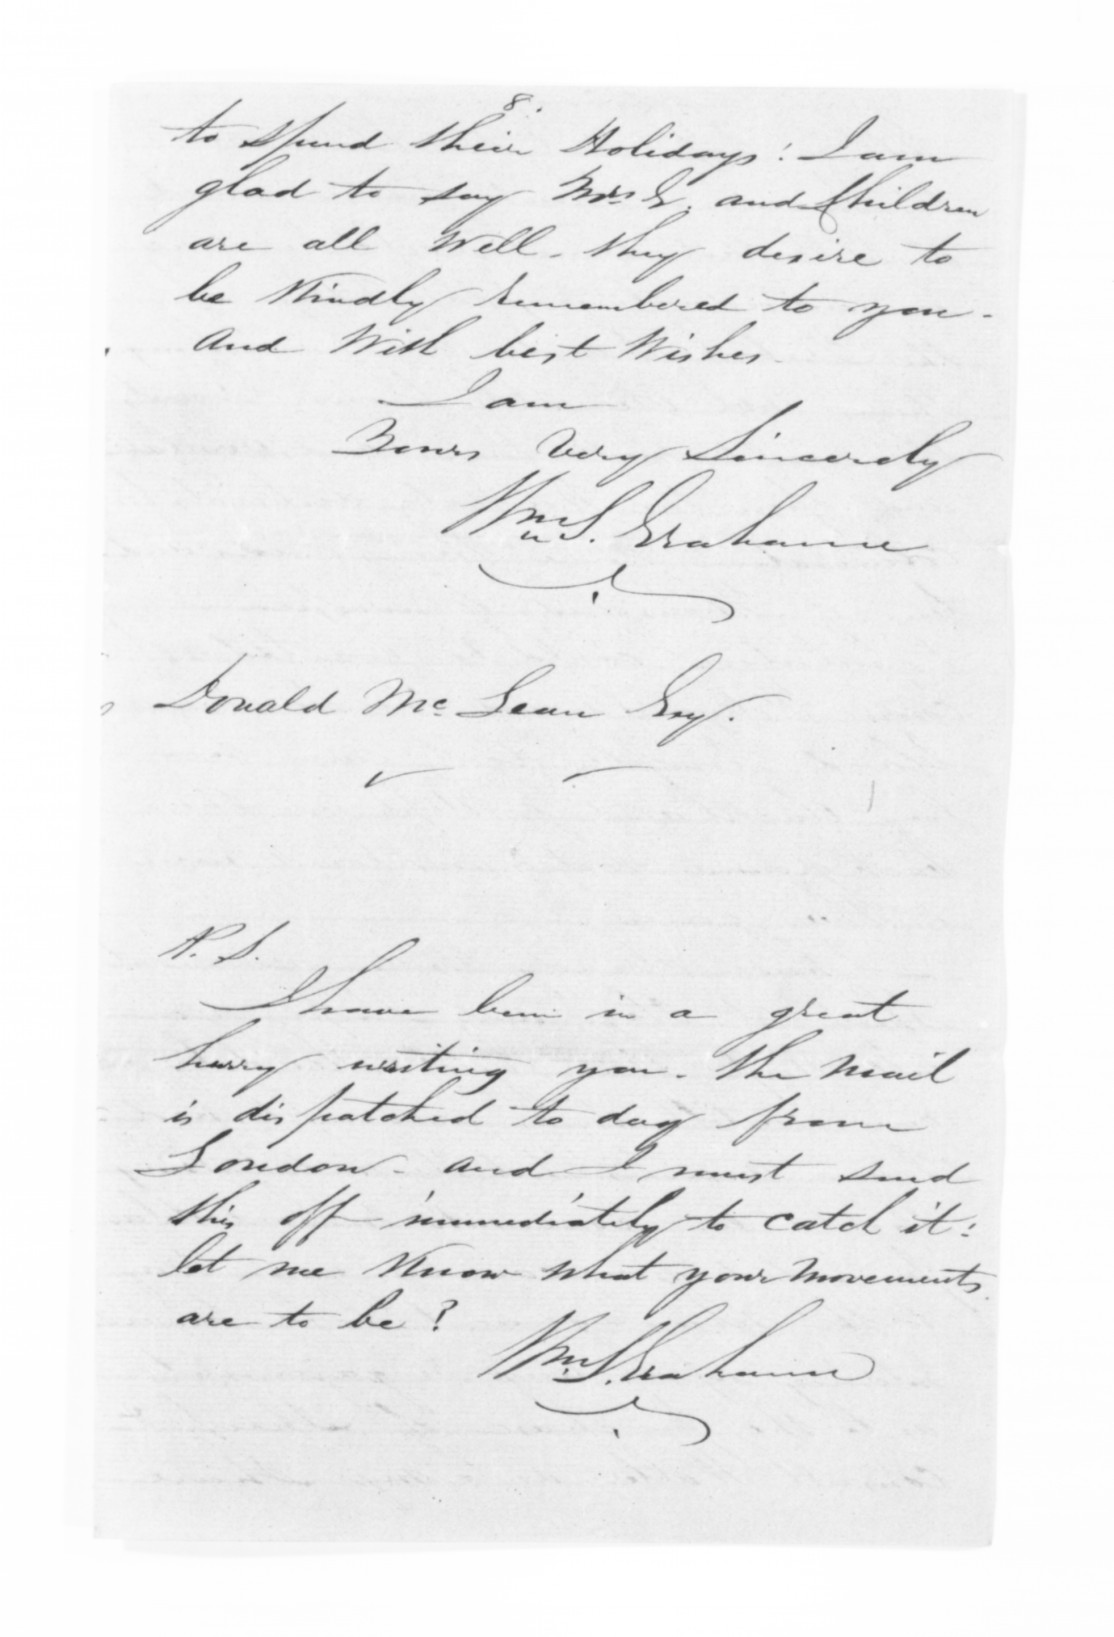 8.
to spend their Holidays! I am
glad to say Mrs G. and Children
are all well. they desire to
be Kindly remembered to you.
And With best Wishes.
I am
Yours Very Sincerely
Wm S. Grahame
Donald McLean Esq.
P.S.
I have been in a great
hurry writing you. the mail
is dispatched to day from
London. and I must send
this off immediately to catch it:
let me Know what your movements
are to be?
Wm S. Grahame